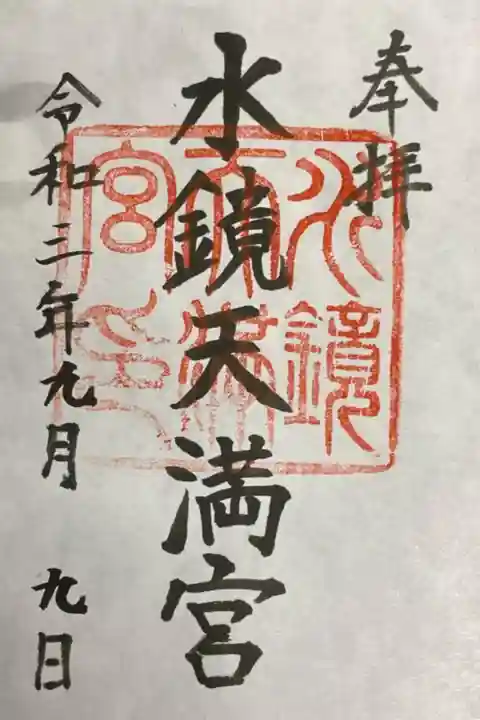 奉拝
水鏡天満宮
水鏡
天満
宮印
令和三年九月九日